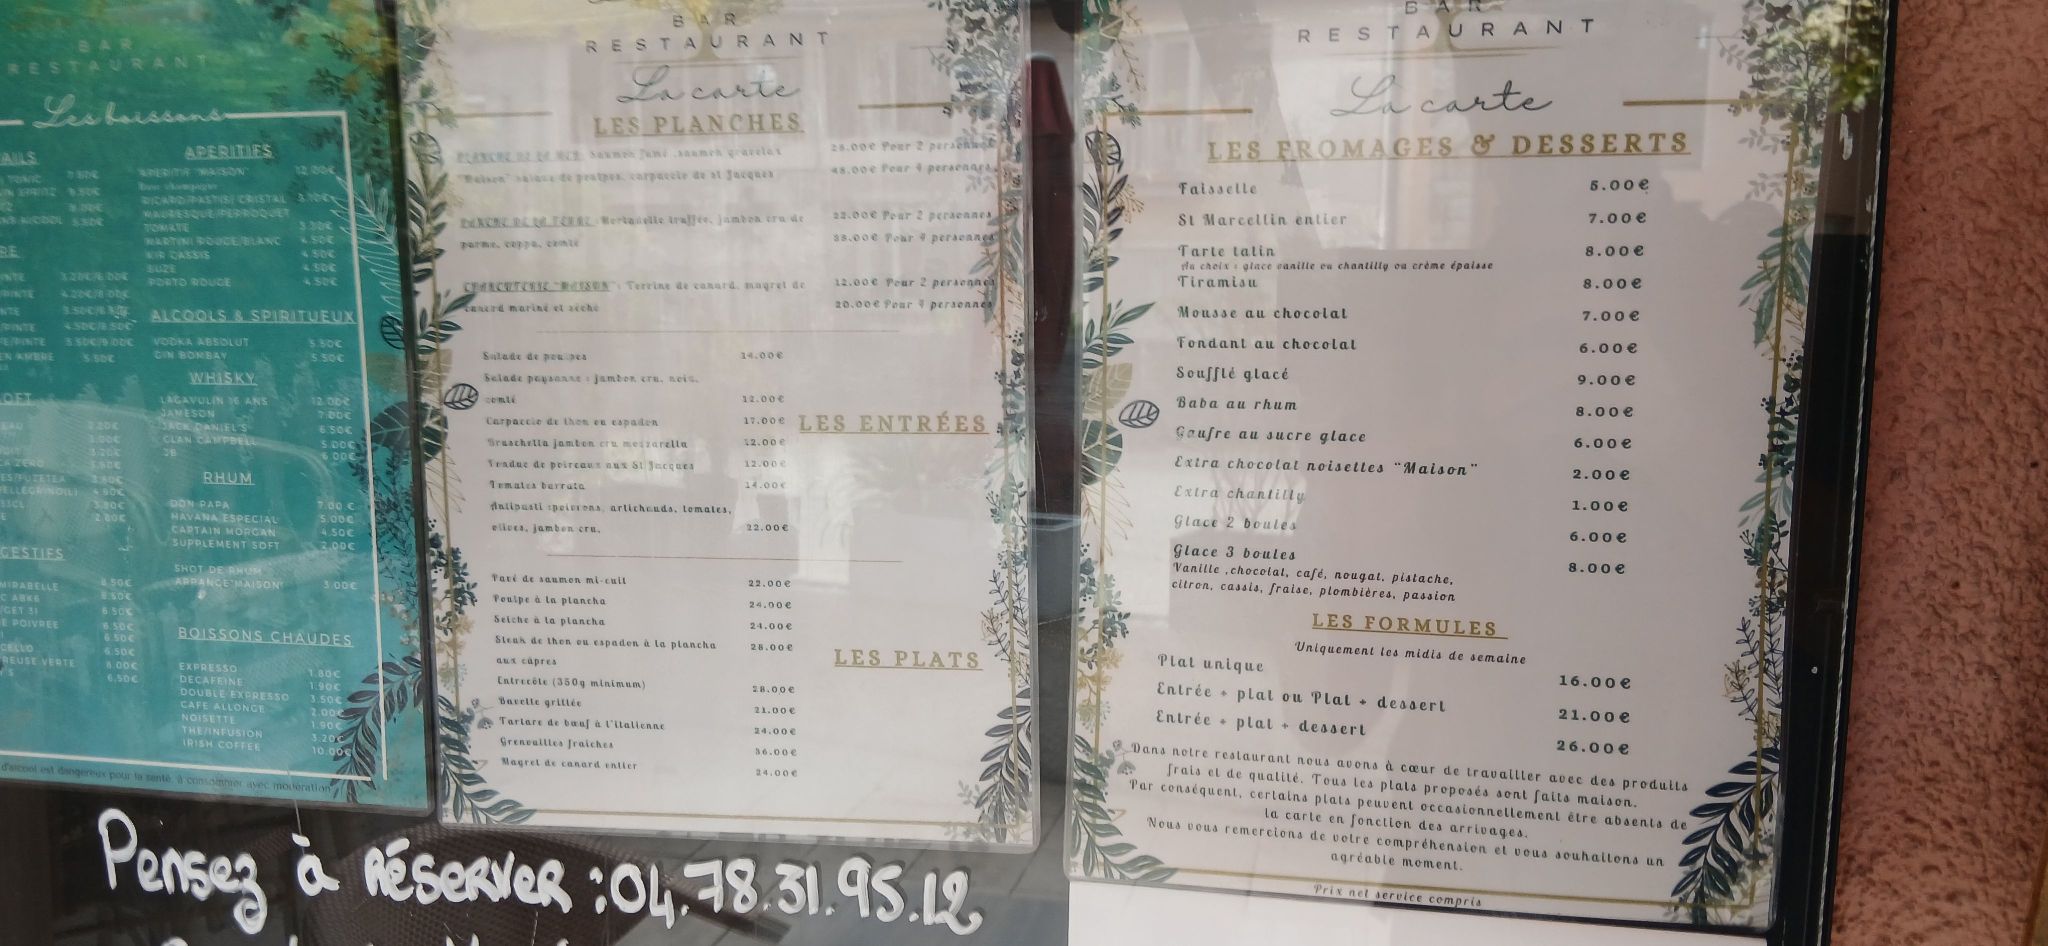 BAR
RESTAURANT
Les boissons
AILS
TONIC 7.50€
9.50€
8.00€
ALCOOL 5.50€
3.20€/6.00€
4.20€/8.00€
3.50€
4.50€/8.50€
/PINTE 3.50€/9.00€
EN AMBRE 5.50€
CESTIFS
MIRABELLE 8.50€
8.50€
GET 31 6.50€
POIVREE 6.50€
6.50€
CELLO 6.50€
REUSE VERTE 8.00€
6.50€
APERITIFS
APERITIF "MAISON" 12.00€
RICARD/PASTIS/ CRISTAL 3.10€
MAURESQUE/PERROQUET
TOMATE 3.30€
MARTINI ROUGE/BLANC 4.50€
KIR CASSIS 4.50€
SUZE 4.50€
PORTO ROUGE 4.50€
ALCOOLS & SPIRITUEUX
VODKA ABSOLUT 5.50€
GIN BOMBAY 5.50€
WHISKY
LAGAVULIN 16 ANS 12.00€
JAMESON 7.00€
JACK DANIEL'S 6.50€
CLAN CAMPBELL 5.00€
JB 6.00€
RHUM
DON PAPA 7.00 €
HAVANA ESPECIAL 5.00€
CAPTAIN MORGAN 4.50€
SUPPLEMENT SOFT 2.00€
SHOT DE RHUM
ARRANGE"MAISON" 3.00€
BOISSONS CHAUDES
EXPRESSO 1.80€
DECAFEINE 1.90€
DOUBLE EXPRESSO 3.50€
CAFE ALLONGE 2.00€
NOISETTE 1.90€
THE/INFUSION 3.20€
IRISH COFFEE 10.00€
d'alcool est dangereux pour la santé, à consommer avec modération
BAR
RESTAURANT
La carte
LES PLANCHES
PLANCHE DE LA MER: Saumon fumé ,saumon gravelax 25.00€ Pour 2 personnes
"Maison" salade de poulpes, carpaccio de st Jacques 45.00€ Pour 4 personnes
PLANCHE DE LA TERRE :Mortadelle truffée, jambon cru de 22.00€ Pour 2 personnes
parme, coppa, comté 35.00€ Pour 4 personnes
CHARCUTERIE "MAISON": Terrine de canard, magret de 12.00€ Pour 2 personnes
canard mariné et séché 20.00€ Pour 4 personnes
Salade de poulpes 14.00€
Salade paysanne : jambon cru, noix,
comté 12.00€
Carpaccio de thon ou espadon 17.00€
LES ENTRÉES
Bruschetta jambon cru mozzarella 12.00€
Fondue de poireaux aux St Jacques 12.00€
Tomates burrata 14.00€
Antipasti :poivrons, artichauds, tomates,
olives, jambon cru. 22.00€
Pavé de saumon mi-cuit 22.00€
Poulpe à la plancha 24.00€
Seiche à la plancha 24.00€
Steak de thon ou espadon à la plancha 28.00€
aux câpres
LES PLATS
Entrecôte (350g minimum) 28.00€
Bavette grillée 21.00€
Tartare de bœuf à l'italienne 24.00€
Grenouilles fraîches 36.00€
Magret de canard entier 24.00€
BAR
RESTAURANT
La carte
LES FROMAGES & DESSERTS
Faisselle 5.00€
St Marcellin entier 7.00€
Tarte tatin 8.00€
Au choix : glace vanille ou chantilly ou crème épaisse
Tiramisu 8.00€
Mousse au chocolat 7.00€
Fondant au chocolat 6.00€
Soufflé glacé 9.00€
Baba au rhum 8.00€
Gaufre au sucre glace 6.00€
Extra chocolat noisettes "Maison" 2.00€
Extra chantilly 1.00€
Glace 2 boules 6.00€
Glace 3 boules 8.00€
Vanille ,chocolat, café, nougat, pistache,
citron, cassis, fraise, plombières, passion
LES FORMULES
Uniquement les midis de semaine
Plat unique 16.00€
Entrée + plat ou Plat + dessert 21.00€
Entrée + plat + dessert 26.00€
Dans notre restaurant nous avons à cœur de travailler avec des produits
frais et de qualité. Tous les plats proposés sont faits maison.
Par conséquent, certains plats peuvent occasionnellement être absents de
la carte en fonction des arrivages.
Nous vous remercions de votre compréhension et vous souhaitons un
agréable moment.
Prix net service compris
Pensez à RÉSERVER : 04.78.31.95.12